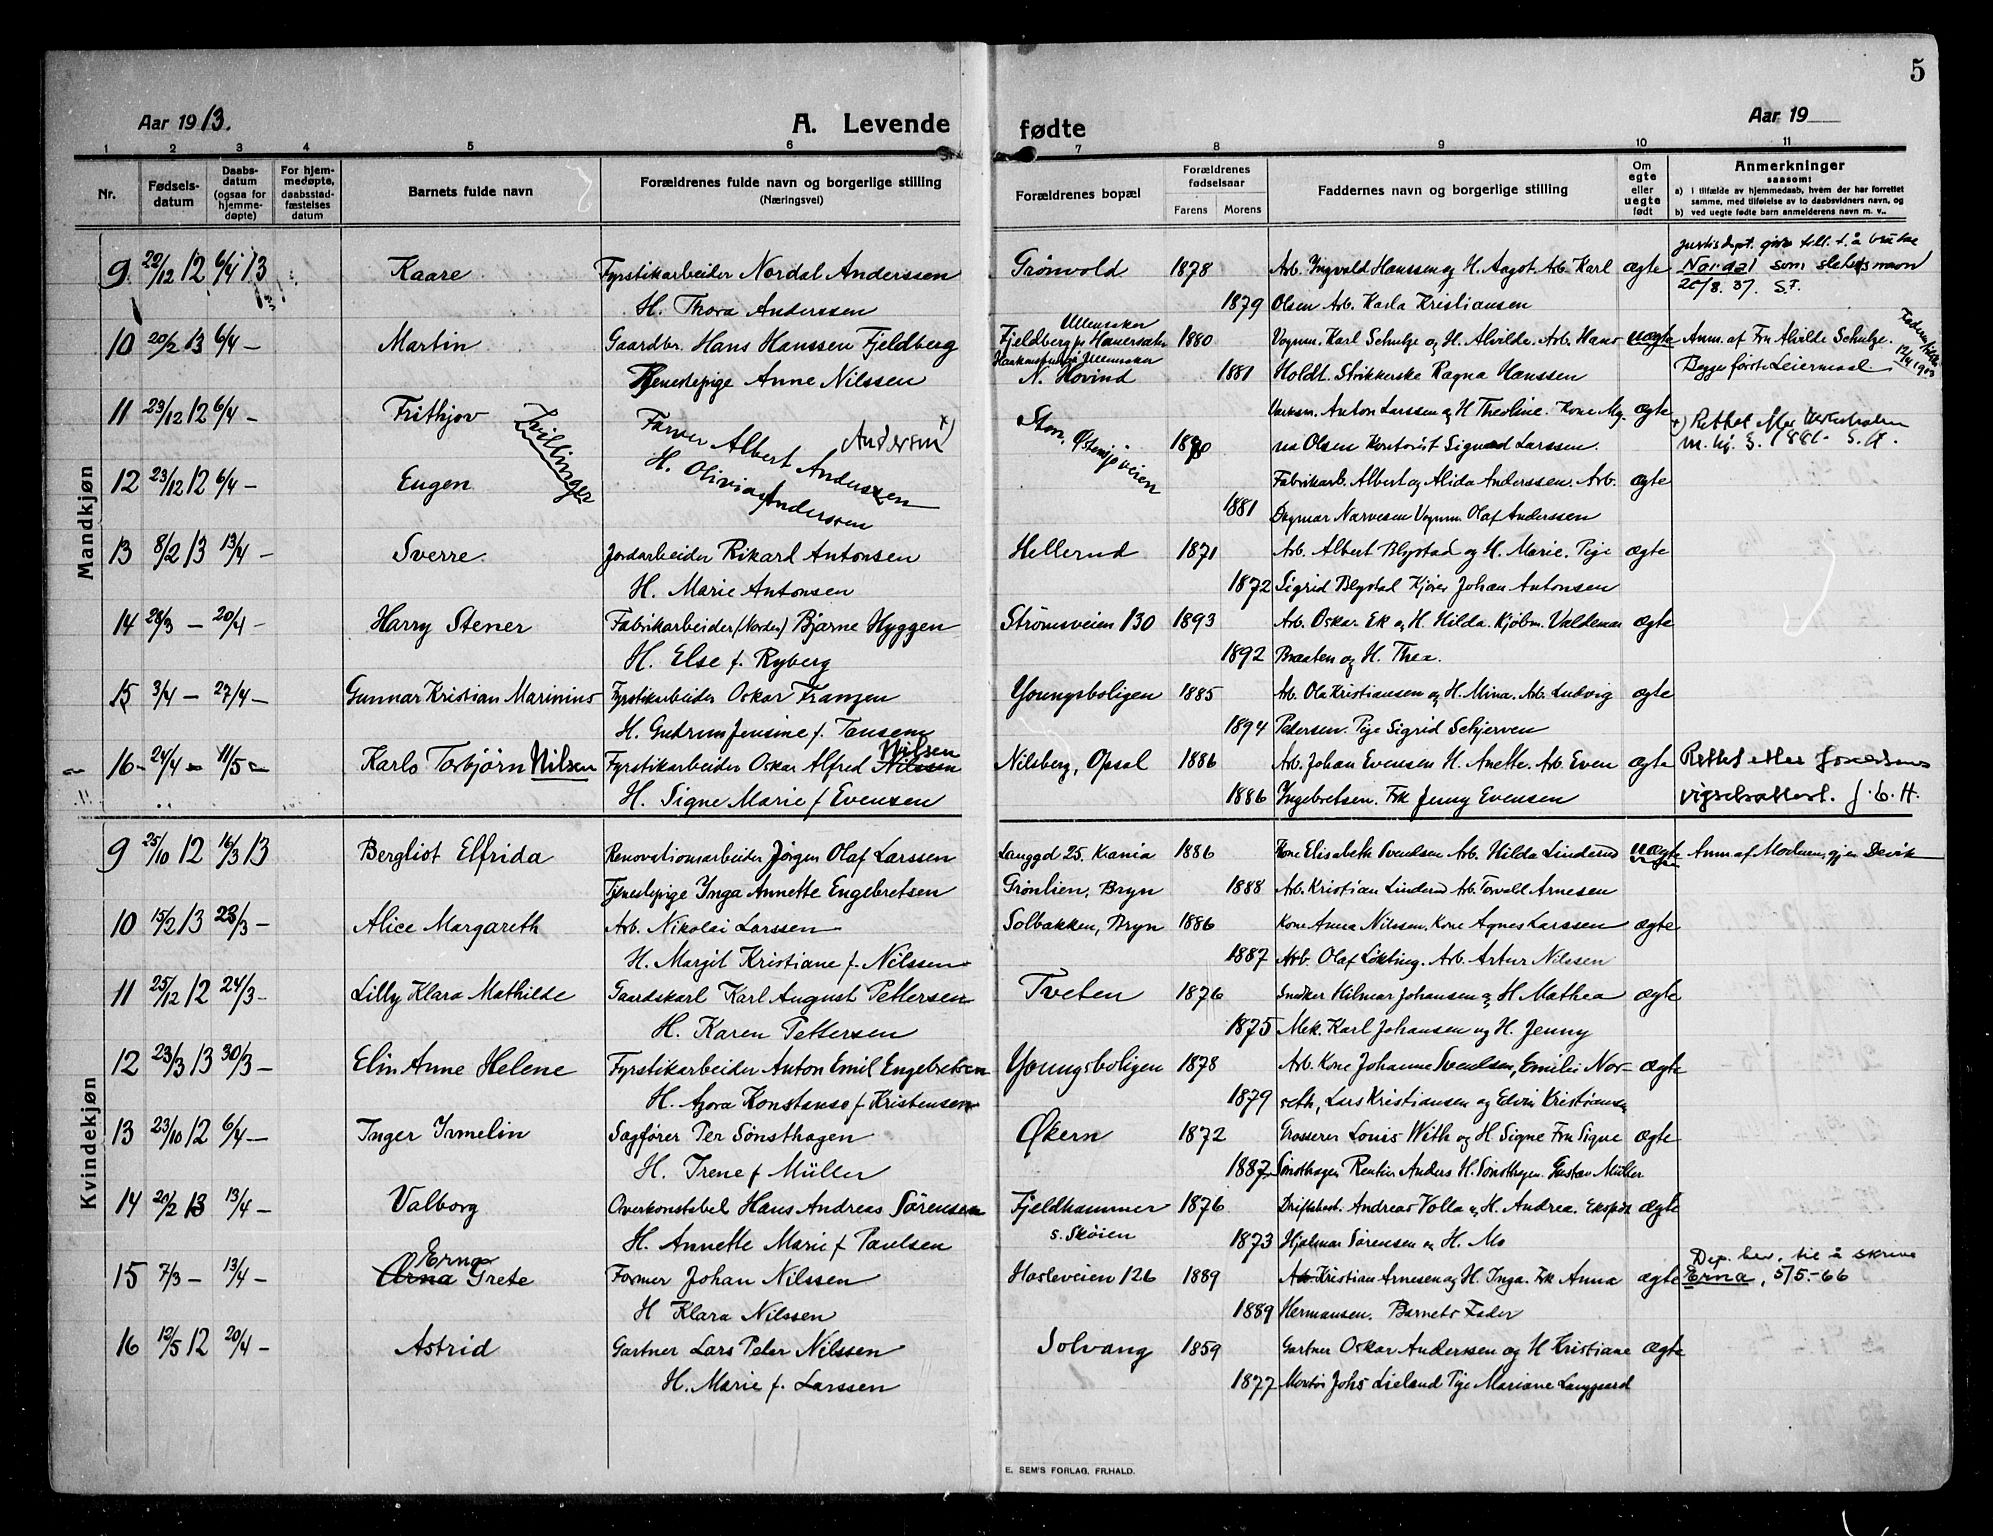 5
Aar 1913.
A. Levende
fødte
Aar 19
1 2 3 4 5 6 7 8 9 10 11
Nr.
Fødsels-
datum
Daabs-
datum
(ogsaa for
hjemme-
døpte)
For hjem-
medøpte,
daabsstad-
fæstelses
datum
Barnets fulde navn
Forældrenes fulde navn og borgerlige stilling
(Næringsvei)
Forældrenes bopæl
Forældrenes
fødselsaar
Farens Morens
Faddernes navn og borgerlige stilling
Om
egte
eller
uegte
født
Anmerkninger
saasom:
a) i tilfælde av hjemmedaab, hvem der har forrettet
samme, med tilføielse av to daabsvidners navn, og
b) ved uegte fødte barn anmelderens navn m. v..
Mandkjøn
9 22/12 12 6/4 13 Kaare Fyrstikarbeider Nordal Anderssen Grönvold 1878 Arb. Ingvald Hanssen og H. Aagot. Arb. Karl ægte Justisdept. give till. t. å bruke
H. Thora Anderssen 1879 Olsen Arb. Karla Kristiansen Nordal som slektsnavn
20/8. 37. S.T.
10 20/2 13 6/4 — Martin Gaardbr. Hans Hanssen Fjeldberg Fjeldberg pr Hauersæter Ullensaker 1880 Vognm. Karl Schulze og H. Alvilde. Arb. Hans uægte Anm. af Fru Alvilde Schulze.
Tjenestepige Anne Nilssen N. Hovind 1881 Holdt. Strikkerske Ragna Hanssen Begge første Leiermaal.
11 23/12 12 6/4 — Frithjov Tvillinger Farver Albert Anderssen Andersen x) Sten, Østensjøveien 1880 Anton Larssen og H Theoline. Kone Mag- ægte x) Rettet efter
H. Olivia Anderssen na Olsen Kontorist Sigurd Larssen. 1881. S. A.
12 23/12 12 6/4 — Eugen Fabrikarb. Albert og Alida Anderssen. Arb. ægte
1881 Dagmar Narvesen Vognm. Olaf Anderssen
13 8/2 13 13/4 — Sverre. Jordarbeider Rikard Antonsen Hellerud 1871 Arb. Albert Blystad og H. Marie. Pige ægte
H. Marie Antonsen 1872 Sigrid Blystad Kjører Johan Antonsen
14 28/3 — 20/4 — Harry Stener Fabrikarbeider (Norden) Bjarne Hyggen Strömsveien 130 1893 Arb. Oskar Ek og H. Hilda. Kjøbm. Valdemar ægte
H. Else f. Ryberg 1892 Braaten og H. Thea.
15 3/4 — 27/4 — Gunnar Kristian Marinius Fyrstikarbeider Oskar Franzen Youngsboligen 1885 Arb. Ola Kristiansen og H. Mina. Arb. Ludvig ægte
H. Gudrun Jensine f. Tansem 1894 Pedersen. Pige Sigrid Schjerven
16 — 24/4 — 11/5 — Karlo Torbjørn Nilsen Fyrstikarbeider Oskar Alfred Nilssen Nilsen Nilsberg, Opsal 1886 Arb. Johan Evensen H. Anette. Arb. Even ægte Rettet etter foreldrenes
H. Signe Marie f Evensen 1886 Ingebretsen. Frk Jenny Evensen vigselsattest. J. C. H.
Kvindekjøn
9 25/10 12 16/3 13 Bergliot Elfrida Renovationsarbeider Jörgen Olaf Larssen Langgd 25. Krania 1886 Kone Elisabeth Svendsen Arb. Hilda Linderud uægte Anm af Moderen
Tjenestepige Inga Annette Engebretsen Grönlien, Bryn 1888 Arb. Kristian Linderud Arb. Torvald Arnesen
10 15/2 13 23/3 — Alice Margareth Arb. Nikolai Larssen Solbakken, Bryn 1886 Kone Anna Nilssen. Kone Agnes Larssen ægte
H. Margit Kristiane f. Nilssen 1887 Arb. Olaf Løkting. Arb. Artur Nilssen
11 25/12 12 24/3 — Lilly Klara Mathilde Gaardskarl Karl August Pettersen Tveten 1876 Snedker Hilmar Johansen og H Mathea ægte
H. Karen Pettersen 1875 Mek. Karl Johansen og H. Jenny
12 23/3 13 30/3 — Elin Anne Helene Fyrstikarbeider Anton Emil Engebretsen Youngsboligen 1878 Arb. Kone Johanne Svendsen, Emilie Nor- ægte
H. Agora Konstanse f Kristensen 1879 seth, Lars Kristiansen og Edvin Kristiansen
13 23/10 12 6/4 — Inger Irmelin Sagfører Per Sönsthagen Økern 1872 Grosserer Louis With og H. Signe Fru Signe ægte
H. Irene f Müller 1887 Sønsthagen Rentier Anders H. Sønsthagen. Gustav Müller
14 20/2 13 13/4 — Valborg Overkonstabel Hans Andreas Sörensen Fjeldhammer 1876 Driftsbest. Andreas Volla og H. Andrea. Ekspdt. ægte
H. Annette Marie f Paulsen s. Skøien 1873 Hjalmar Sørensen og H. Mo
15 7/3 — 13/4 — Arna Erna Grete Former Johan Nilssen Hasleveien 126 1889 Arb Kristian Arnesen og H. Inga. Frk Anna ægte Dep. bev. til å skrive
H Klara Nilssen 1889 Hermansen. Barnets Fader Erna, 5/5-66
16 12/5 12 20/4 — Astrid Gartner Lars Peter Nilssen Solvang 1859 Gartner Oskar Anderssen og H Kristiane ægte
H. Marie f. Larssen 1877 Montør Johs Lieland Pige Mariane Langgaard
E. SEM'S FORLAG. FR.HALD.